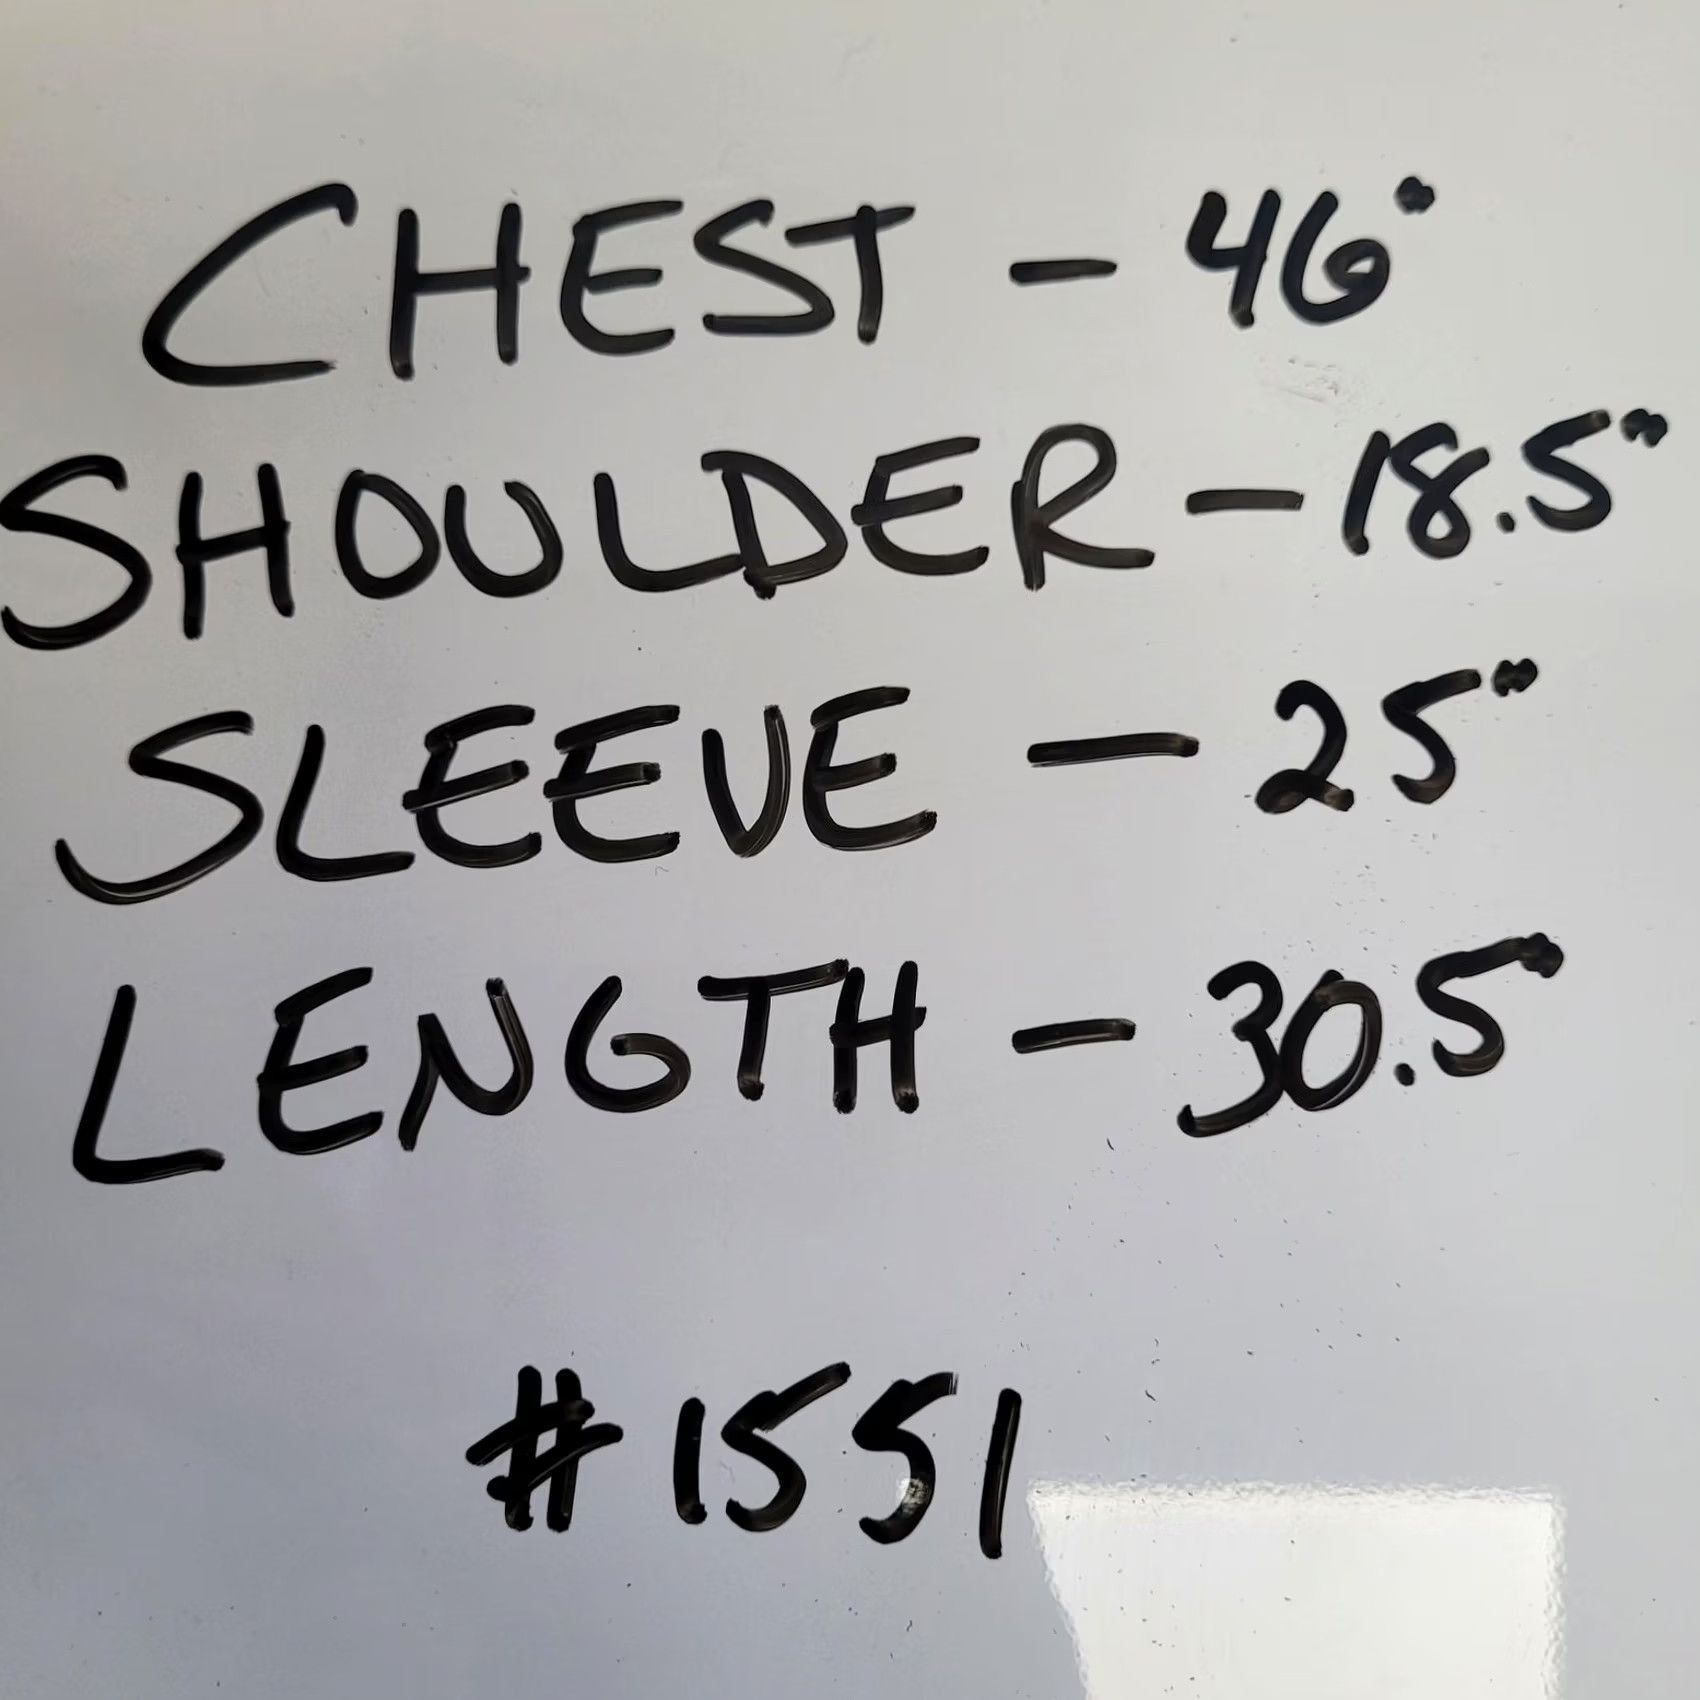 CHEST - 46"
SHOULDER - 18.5"
SLEEVE - 25"
LENGTH - 30.5"
#1551